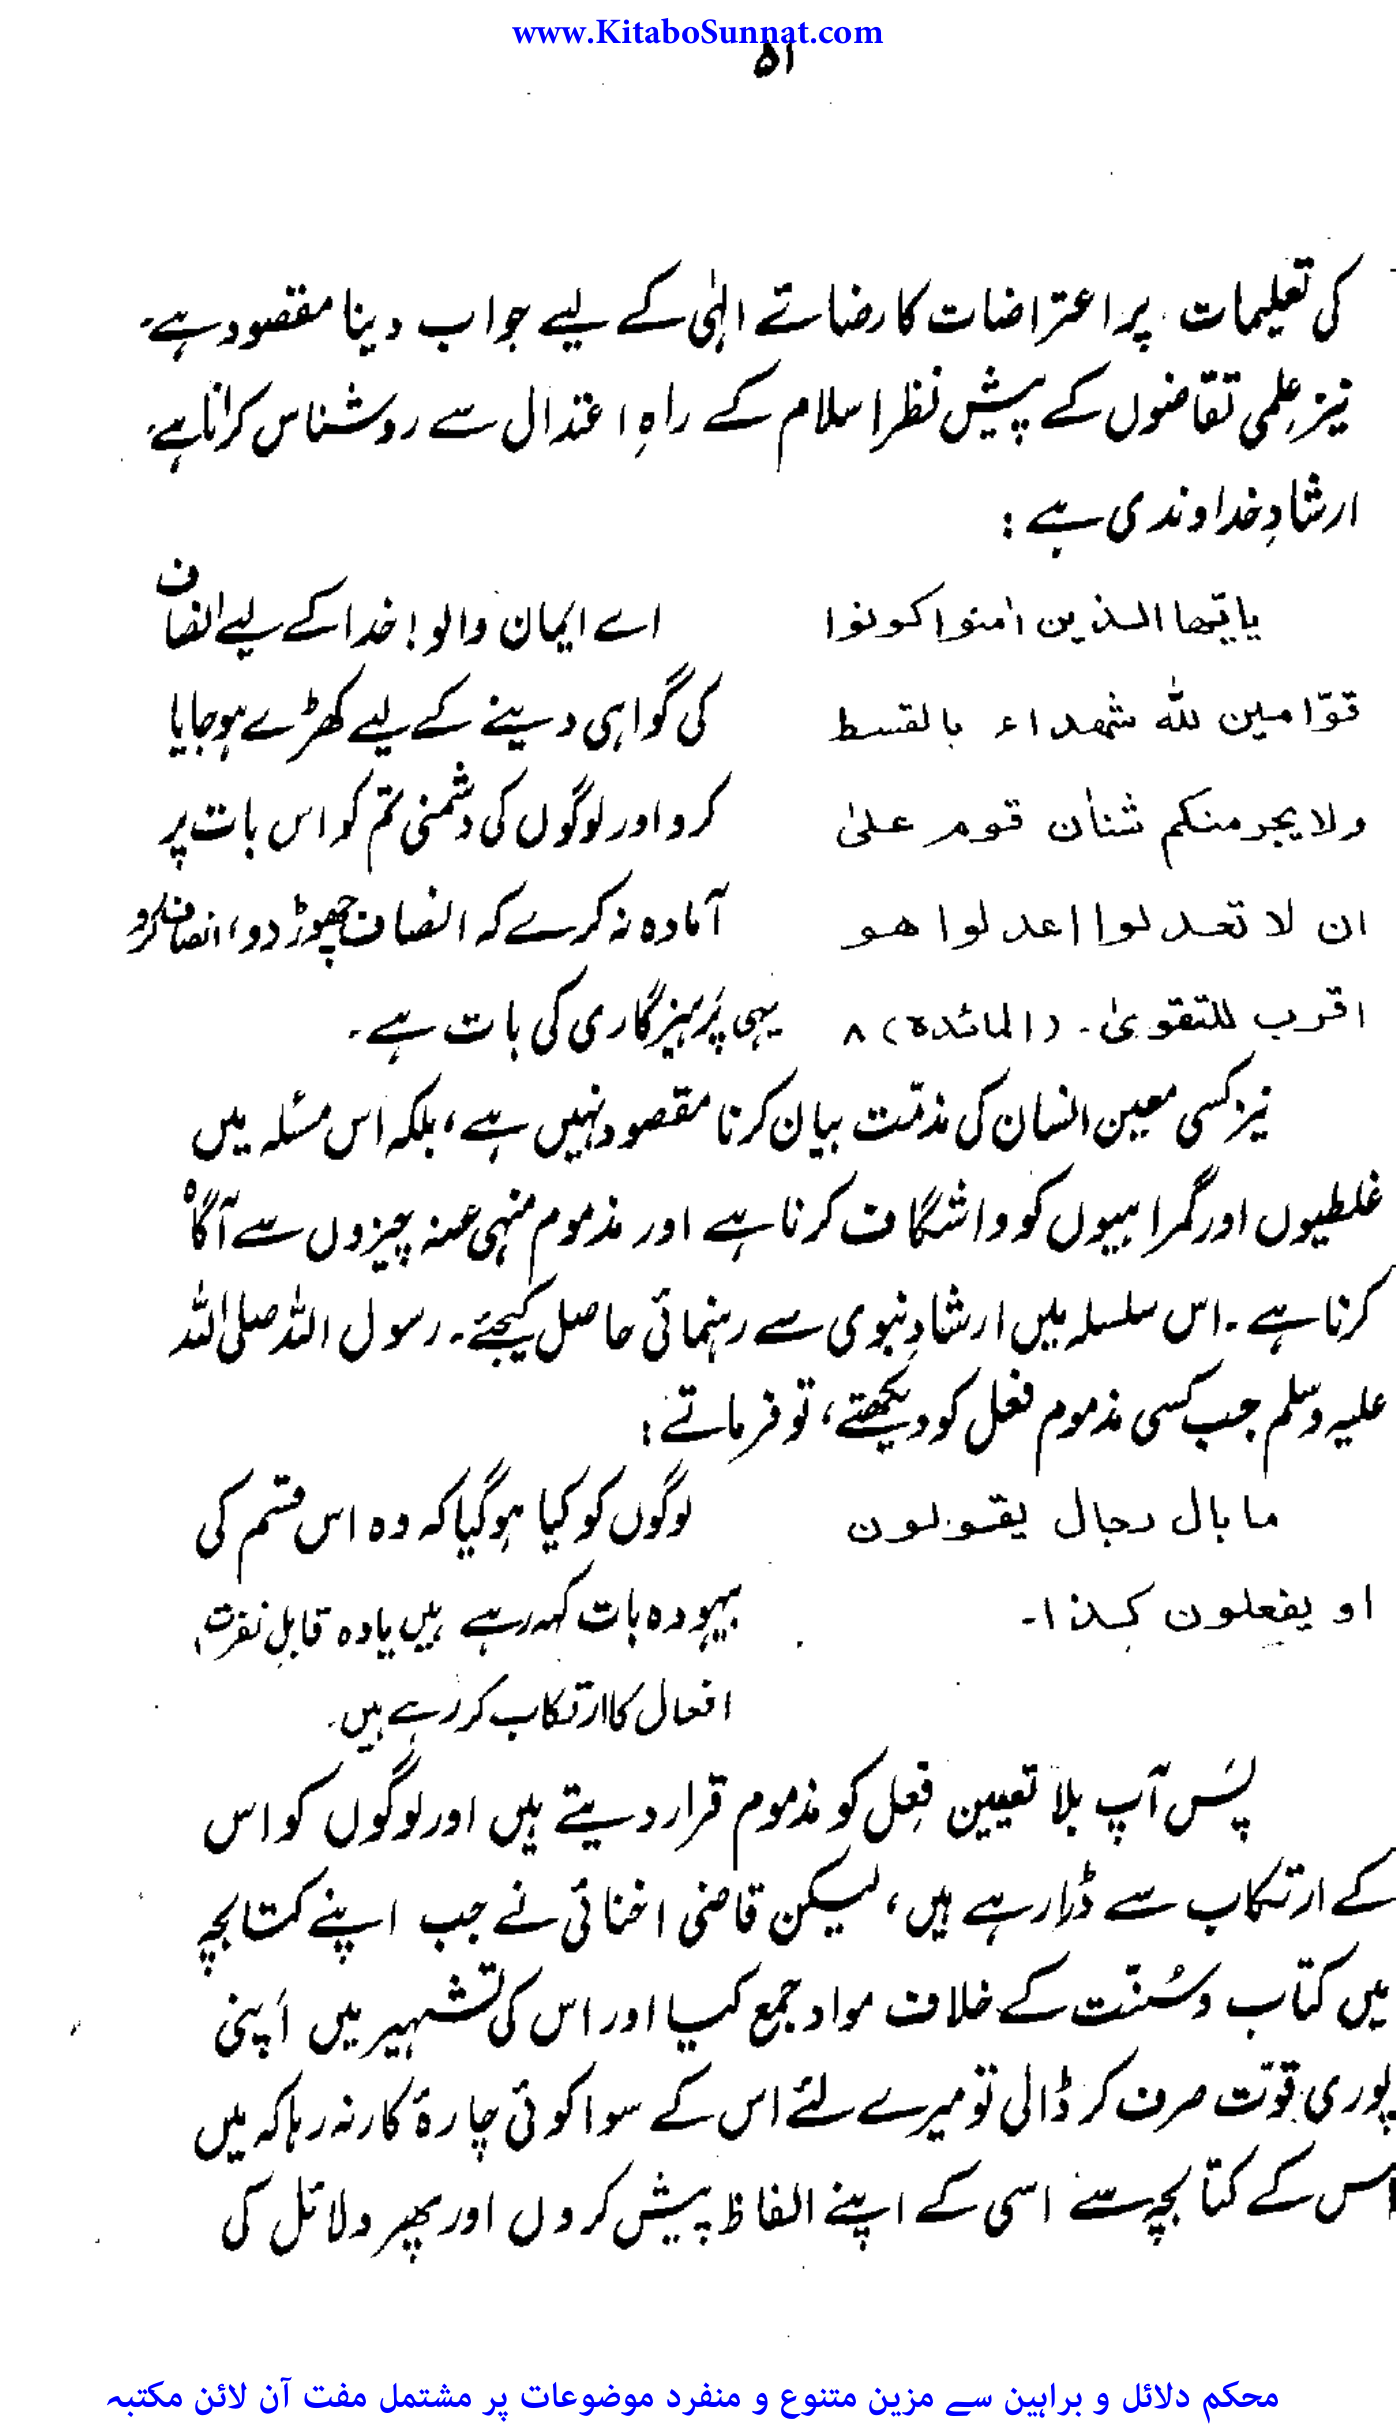 www.KitaboSunnat.com
۵۱
کی تعلیمات پر اعتراضات کا رضائے الٰہی کے لیے جواب دینا مقصود ہے۔
نیز علمی تقاضوں کے پیش نظر اسلام کے راہِ اعتدال سے روشناس کرانا ہے،
ارشادِ خداوندی ہے :
یایّھا الذین اٰمنوا کونوا
قوّامین للہ شھداء بالقسط
ولا یجرمنکم شناٰن قوم علیٰ
ان لا تعدلوا اعدلوا ھو
اقرب للتقویٰ۔ (المائدہ) ۸
اے ایمان والو! خدا کے لیے انصاف
کی گواہی دینے کے لیے کھڑے ہو جایا
کرو اور لوگوں کی دشمنی تم کو اس بات پر
آمادہ نہ کرے کہ انصاف چھوڑ دو، انصاف کرو
یہی پرہیزگاری کی بات ہے۔
نیز کسی معین انسان کی مذمّت بیان کرنا مقصود نہیں ہے، بلکہ اس مسئلہ میں
غلطیوں اور گمراہیوں کو واشگاف کرنا ہے اور مذموم منہی عنہ چیزوں سے آگاہ
کرنا ہے۔ اس سلسلہ میں ارشادِ نبوی سے رہنمائی حاصل کیجئے۔ رسول اللہ صلی اللہ
علیہ وسلم جب کسی مذموم فعل کو دیکھتے، تو فرماتے :
ما بال رجال یقولون
او یفعلون کذا۔
لوگوں کو کیا ہو گیا کہ وہ اس قسم کی
بیہودہ بات کہہ رہے ہیں یا وہ قابلِ نفرت
افعال کا ارتکاب کر رہے ہیں۔
پَس آپ بلا تعیین فِعل کو مذموم قرار دیتے ہیں اور لوگوں کو اس
کے ارتکاب سے ڈرا رہے ہیں، لیکن قاضی اخنائی نے جب اپنے کتابچہ
میں کتاب وسُنّت کے خلاف مواد جمع کیا اور اس کی تشہیر میں اپنی
پوری قوّت صرف کر ڈالی تو میرے لئے اس کے سوا کوئی چارۂ کار نہ رہا کہ میں
اس کے کتابچہ سے اسی کے اپنے الفاظ پیش کروں اور پھر دلائل کی
محکم دلائل و براہین سے مزین متنوع و منفرد موضوعات پر مشتمل مفت آن لائن مکتبہ